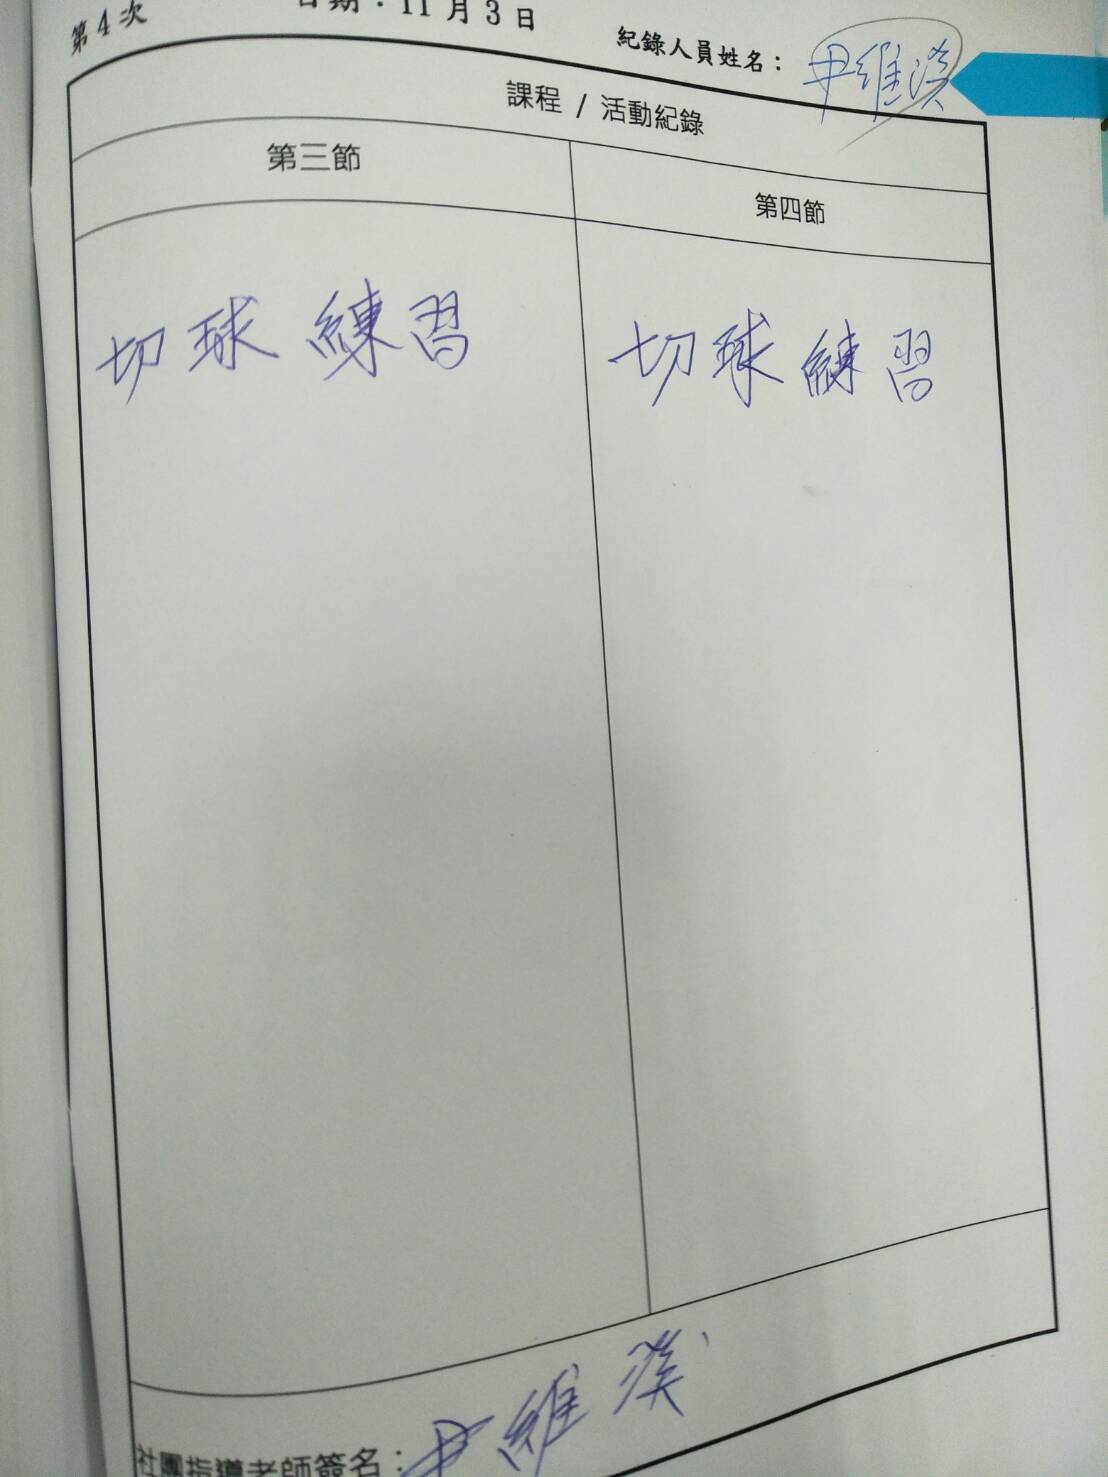 第4次
日期：11月3日
紀錄人員姓名：尹維漢
課程 / 活動紀錄
第三節
第四節
切球練習
切球練習
社團指導老師簽名：尹維漢